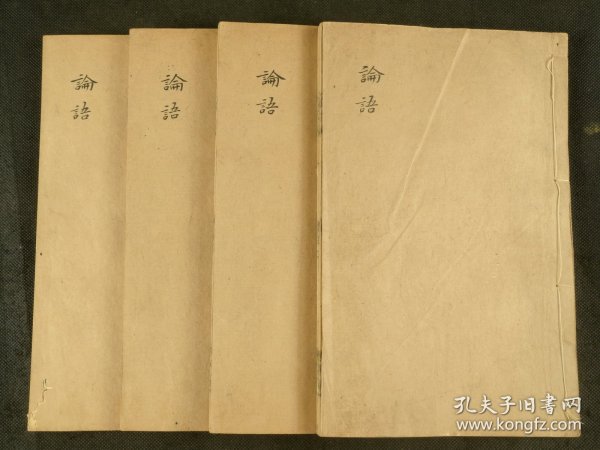 論語
論語
論語
論語
孔夫子旧书网
www.kongfz.com